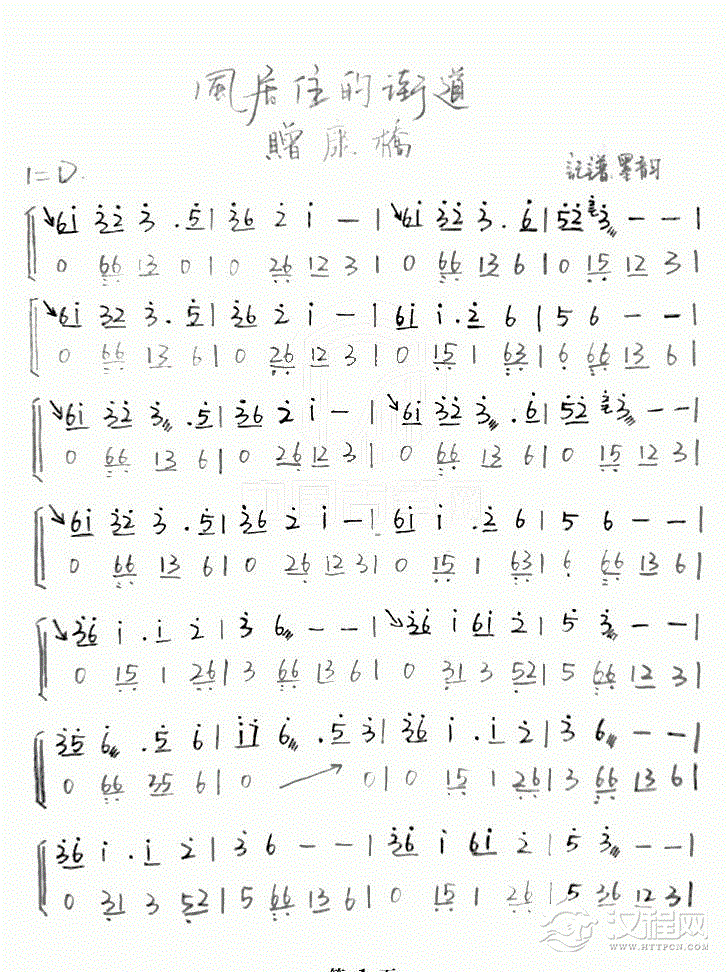 風居住的街道
贈康橋
1=D
記譜墨韵
↘6i 32 3 . 5 | 36 2 i — | ↘6i 32 3 . 6 | 52 3 — — |
0 66 13 0 | 0 26 12 3 | 0 66 13 6 | 0 15 12 3 |
↘6i 32 3 . 5 | 36 2 i — | 6i i . 2 6 | 5 6 — — |
0 66 13 6 | 0 26 12 3 | 0 15 1 63 | 6 66 13 6 |
↘6i 32 3 . 5 | 36 2 i — | ↘6i 32 3 . 6 | 52 3 — — |
0 66 13 6 | 0 26 12 3 | 0 66 13 6 | 0 15 12 3 |
↘6i 32 3 . 5 | 36 2 i — | 6i i . 2 6 | 5 6 — — |
0 66 13 6 | 0 26 12 3 | 0 15 1 63 | 6 66 13 6 |
↘36 i . i 2 | 3 6 — — | ↘36 i 6i 2 | 5 3 — — |
0 15 1 26 | 3 66 13 6 | 0 31 3 52 | 5 66 12 3 |
35 6 . 5 6 | ii 6 . 5 3 | 36 i . i 2 | 3 6 — — |
0 66 35 6 | 0 → 0 | 0 15 1 26 | 3 66 13 6 |
36 i . i 2 | 3 6 — — | 36 i 6i 2 | 5 3 — — |
0 31 3 52 | 5 66 13 6 | 0 15 1 26 | 5 36 12 3 |
汉程网
HTTPCN.COM